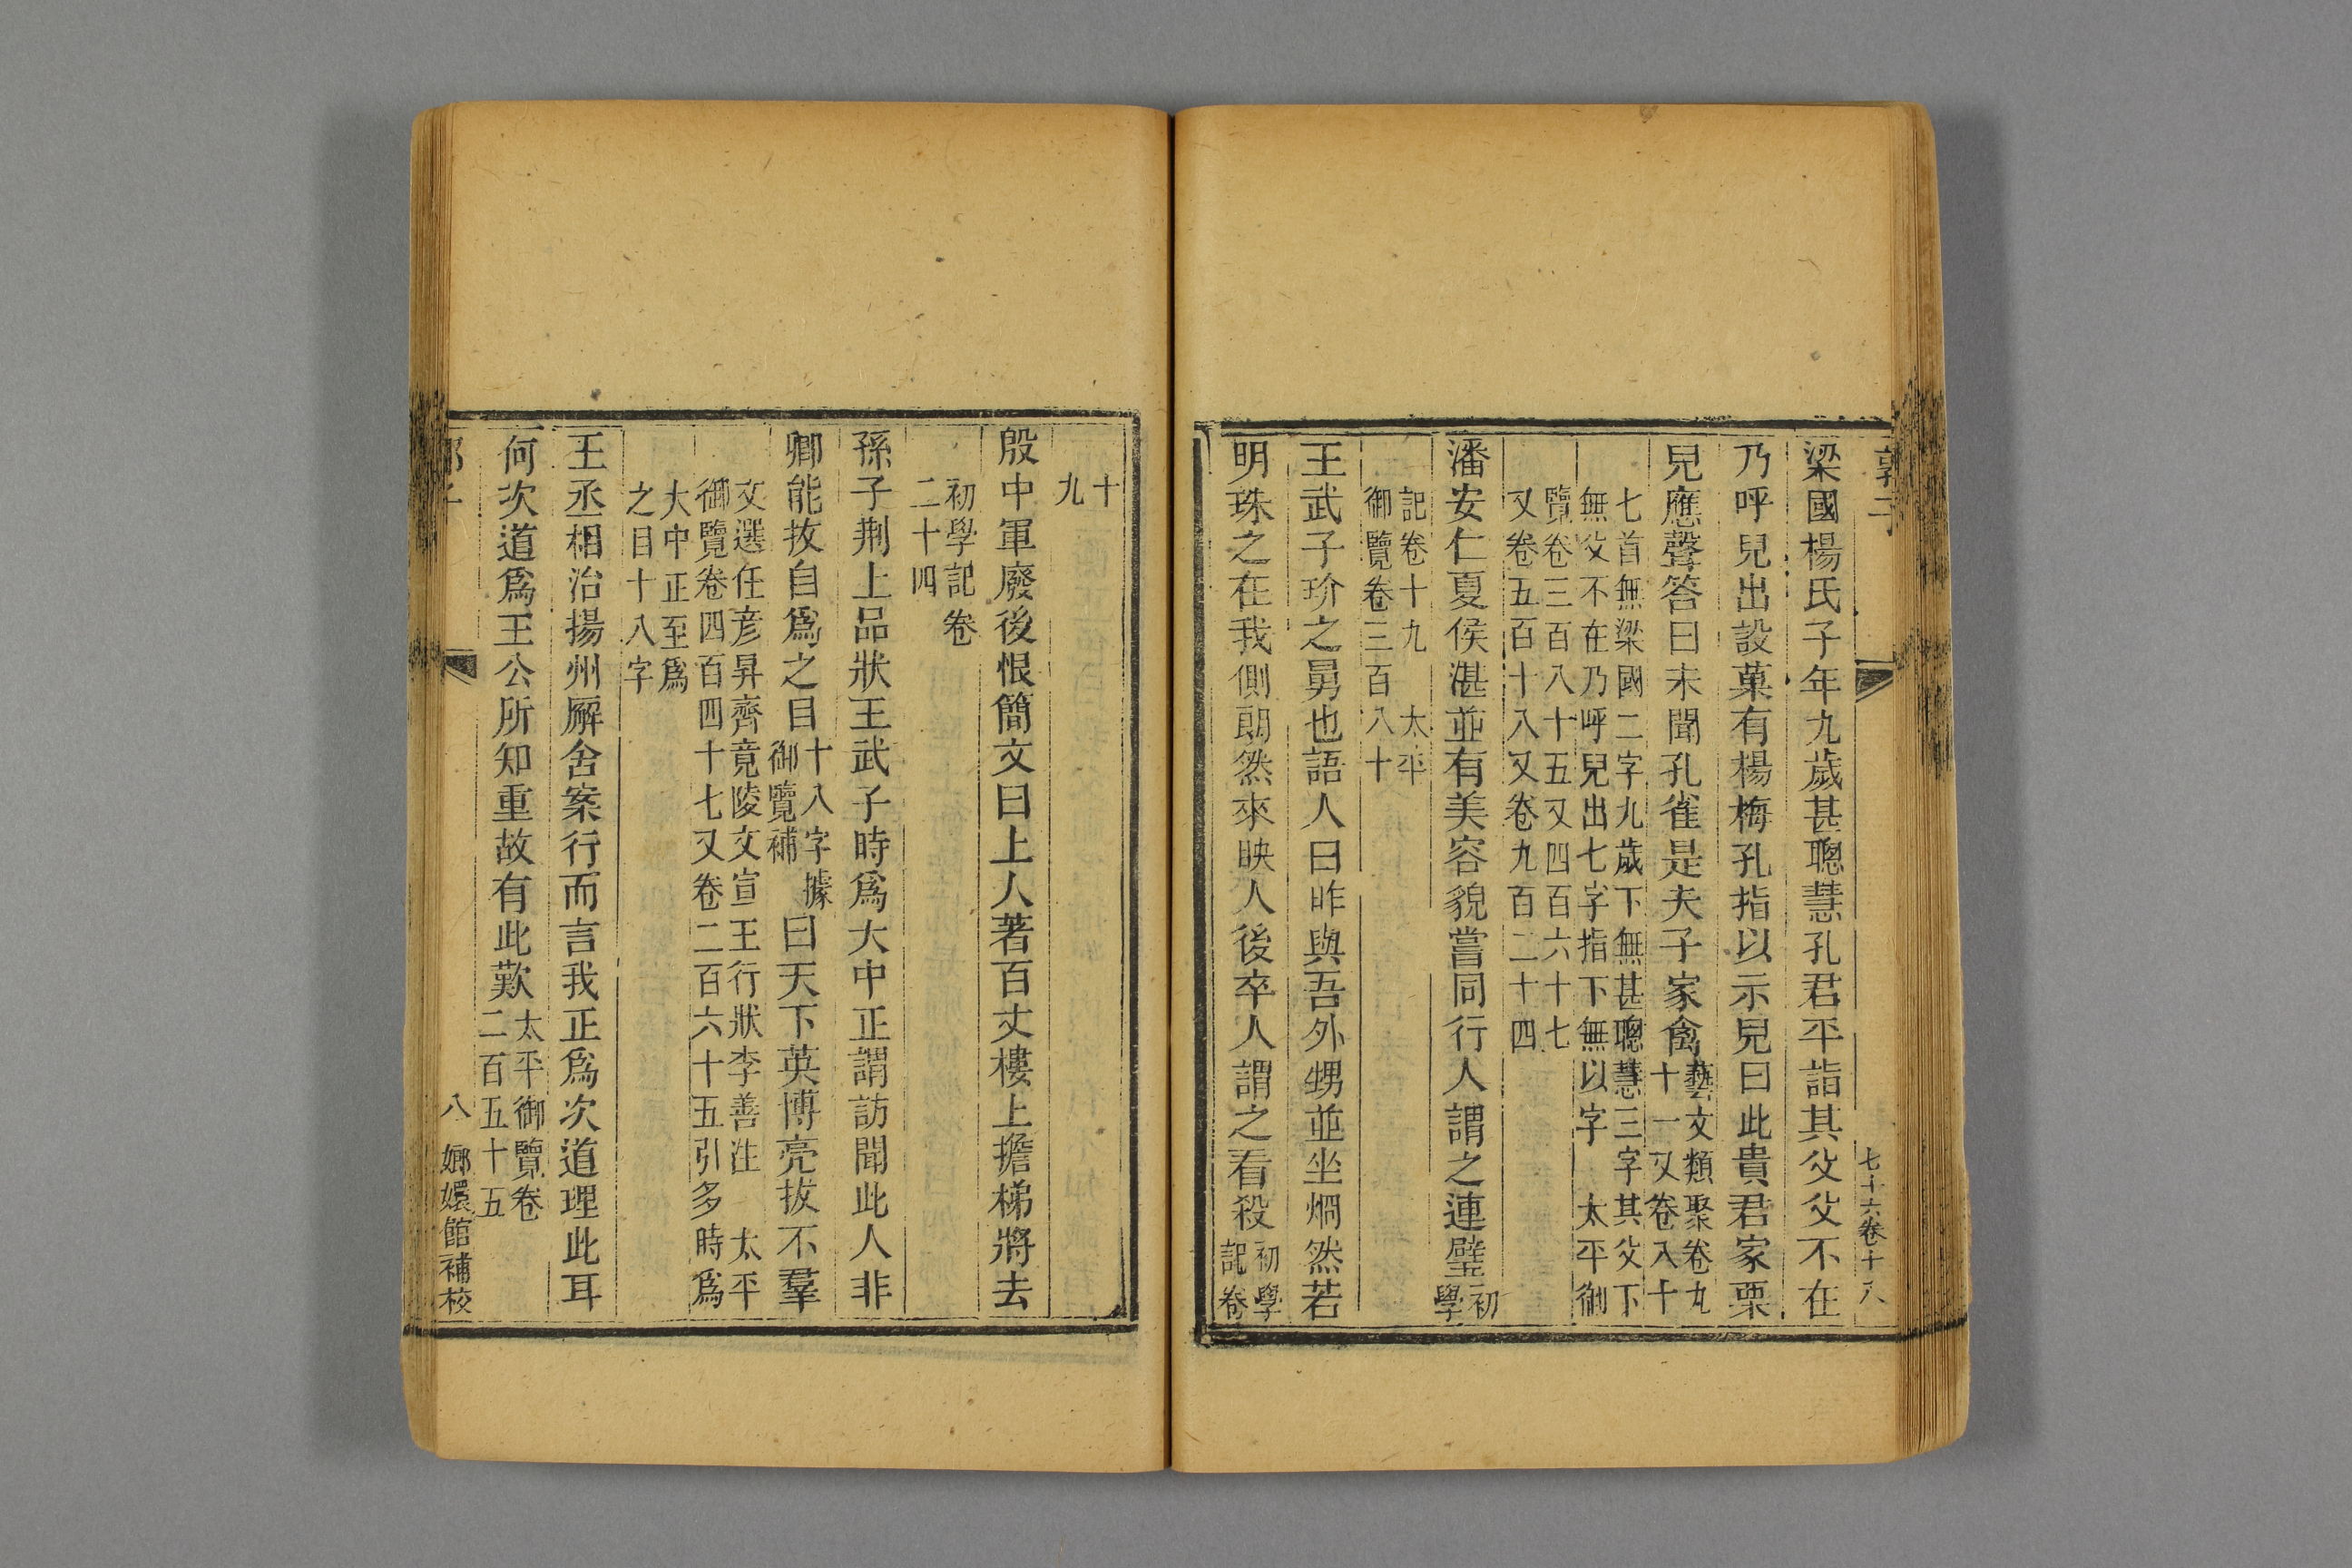 七十六卷十八
梁國楊氏子年九歲甚聰慧孔君平詣其父父不在
乃呼兒出設菓有楊梅孔指以示兒曰此貴君家栗
兒應聲答曰未聞孔雀是夫子家禽藝文類聚卷九十一又卷八十
七首無梁國二字九歲下無甚聰慧三字其父下
無父不在乃呼兒出七字指下無以字 太平御
覽卷三百八十五又四百六十七
又卷五百十八又卷九百二十四
潘安仁夏侯湛並有美容貌嘗同行人謂之連璧初學
記卷十九 太平
御覽卷三百八十
王武子玠之舅也語人曰昨與吾外甥並坐炯然若
明珠之在我側朗然來映人後卒人謂之看殺初學記卷
十
九
殷中軍廢後恨簡文曰上人著百丈樓上擔梯將去
初學記卷
二十四
孫子荆上品狀王武子時爲大中正謂訪聞此人非
卿能拔自爲之目十八字據御覽補曰天下英博亮拔不羣
文選任彦昇齊竟陵文宣王行狀李善注 太平
御覽卷四百四十七又卷二百六十五引多時爲
大中正至爲
之目十八字
王丞相治揚州廨舍案行而言我正爲次道理此耳
何次道爲王公所知重故有此歎太平御覽卷二百五十五
八
嫏嬛館補校